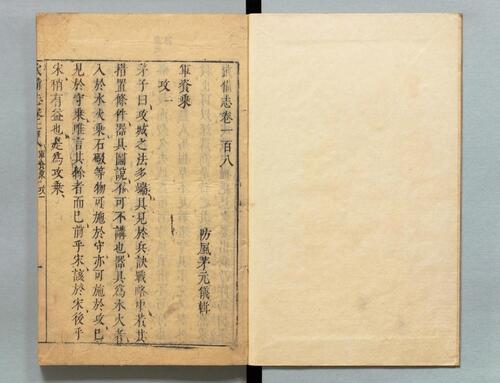 武備志卷一百八
防風茅元儀輯
軍資乘
攻一
茅子曰攻城之法多端具見於兵訣戰略中若其
措置條件器具圖說不可不講也器具為水火者
入於水火乘石礟等物可施於守亦可施於攻已
見於守乘唯言其餘者而已前乎宋該於宋後乎
宋稍有益也是為攻乘
武備志卷一百八 軍資乘 攻一